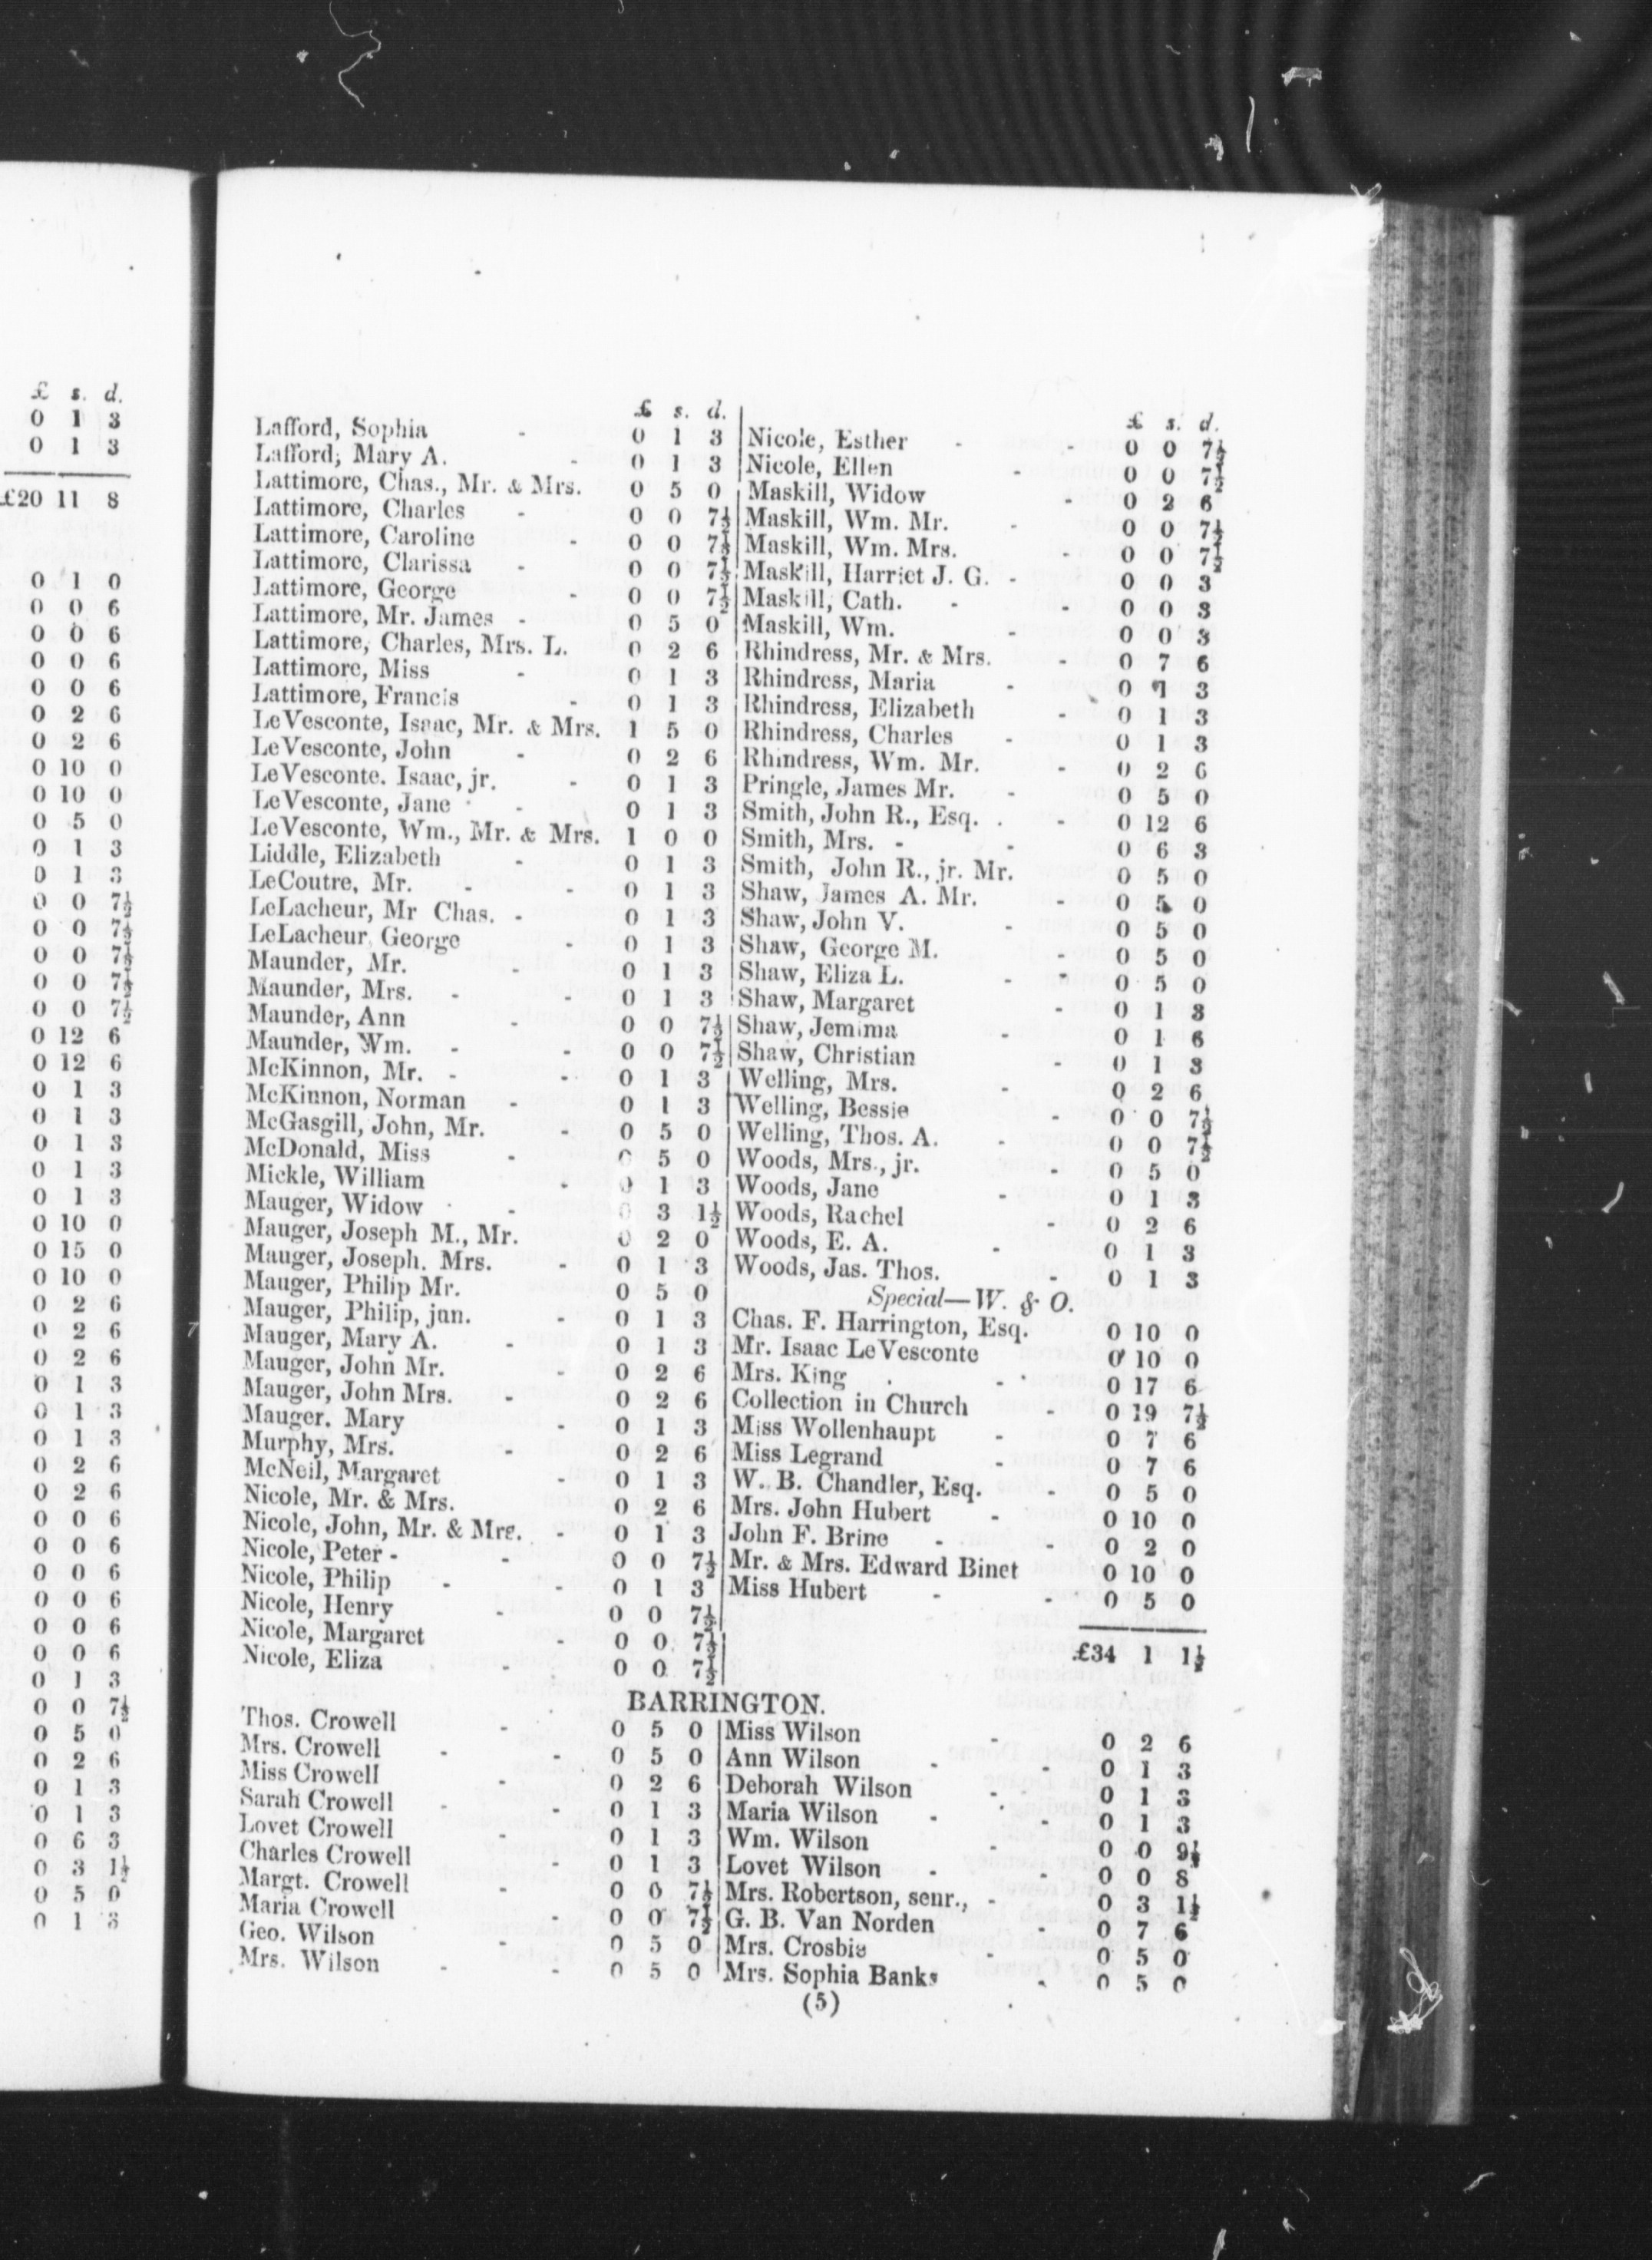 £ s. d.
0 1 3
0 1 3
£20 11 8
0 1 0
0 0 6
0 0 6
0 0 6
0 0 6
0 2 6
0 2 6
0 10 0
0 10 0
0 5 0
0 1 3
0 1 3
0 0 7½
0 0 7½
0 0 7½
0 0 7½
0 0 7½
0 12 6
0 12 6
0 1 3
0 1 3
0 1 3
0 1 3
0 1 3
0 10 0
0 15 0
0 10 0
0 2 6
0 2 6
0 2 6
0 1 3
0 1 3
0 1 3
0 2 6
0 2 6
0 0 6
0 0 6
0 0 6
0 0 6
0 0 6
0 0 6
0 1 3
0 0 7½
0 5 0
0 2 6
0 1 3
0 1 3
0 6 3
0 3 1½
0 5 0
0 1 3
£ s. d.
Lafford, Sophia - 0 1 3
Lafford, Mary A. - 0 1 3
Lattimore, Chas., Mr. & Mrs. 0 5 0
Lattimore, Charles - 0 0 7½
Lattimore, Caroline - 0 0 7½
Lattimore, Clarissa - 0 0 7½
Lattimore, George - 0 0 7½
Lattimore, Mr. James - 0 5 0
Lattimore, Charles, Mrs. L. 0 2 6
Lattimore, Miss - 0 1 3
Lattimore, Francis - 0 1 3
LeVesconte, Isaac, Mr. & Mrs. 1 5 0
LeVesconte, John - 0 2 6
LeVesconte. Isaac, jr. - 0 1 3
LeVesconte, Jane - 0 1 3
LeVesconte, Wm., Mr. & Mrs. 1 0 0
Liddle, Elizabeth - 0 1 3
LeCoutre, Mr. - - 0 1 3
LeLacheur, Mr Chas. - 0 1 3
LeLacheur, George - 0 1 3
Maunder, Mr. - 0 1 3
Maunder, Mrs. - - 0 1 3
Maunder, Ann - 0 0 7½
Maunder, Wm. - - 0 0 7½
McKinnon, Mr. - - 0 1 3
McKinnon, Norman - 0 1 3
McGasgill, John, Mr. - 0 5 0
McDonald, Miss - 0 5 0
Mickle, William - 0 1 3
Mauger, Widow - 0 3 1½
Mauger, Joseph M., Mr. 0 2 0
Mauger, Joseph. Mrs. - 0 1 3
Mauger, Philip Mr. 0 5 0
Mauger, Philip, jun. - 0 1 3
Mauger, Mary A. - 0 1 3
Mauger, John Mr. - 0 2 6
Mauger, John Mrs. - 0 2 6
Mauger. Mary - 0 1 3
Murphy, Mrs. - 0 2 6
McNeil, Margaret - 0 1 3
Nicole, Mr. & Mrs. 0 2 6
Nicole, John, Mr. & Mrs. - 0 1 3
Nicole, Peter - - 0 0 7½
Nicole, Philip - - 0 1 3
Nicole, Henry - 0 0 7½
Nicole, Margaret - 0 0 7½
Nicole, Eliza - 0 0 7½
£ s. d.
Nicole, Esther - - 0 0 7½
Nicole, Ellen - 0 0 7½
Maskill, Widow - 0 2 6
Maskill, Wm. Mr. - 0 0 7½
Maskill, Wm. Mrs. - 0 0 7½
Maskill, Harriet J. G. - 0 0 3
Maskill, Cath. - - 0 0 3
Maskill, Wm. - 0 0 3
Rhindress, Mr. & Mrs. - 0 7 6
Rhindress, Maria - 0 1 3
Rhindress, Elizabeth - 0 1 3
Rhindress, Charles - 0 1 3
Rhindress, Wm. Mr. - 0 2 6
Pringle, James Mr. - 0 5 0
Smith, John R., Esq. . - 0 12 6
Smith, Mrs. - - 0 6 3
Smith, John R., jr. Mr. 0 5 0
Shaw, James A. Mr. - 0 5 0
Shaw, John V. - 0 5 0
Shaw, George M. - 0 5 0
Shaw, Eliza L. - - 0 5 0
Shaw, Margaret - 0 1 3
Shaw, Jemima - 0 1 6
Shaw, Christian - 0 1 3
Welling, Mrs. - 0 2 6
Welling, Bessie - 0 0 7½
Welling, Thos. A. - 0 0 7½
Woods, Mrs., jr. - 0 5 0
Woods, Jane - 0 1 3
Woods, Rachel - 0 2 6
Woods, E. A. - 0 1 3
Woods, Jas. Thos. - 0 1 3
Special—W. & O.
Chas. F. Harrington, Esq. 0 10 0
Mr. Isaac LeVesconte 0 10 0
Mrs. King . - 0 17 6
Collection in Church - 0 19 7½
Miss Wollenhaupt - 0 7 6
Miss Legrand - 0 7 6
W. B. Chandler, Esq. - 0 5 0
Mrs. John Hubert - 0 10 0
John F. Brine - - 0 2 0
Mr. & Mrs. Edward Binet 0 10 0
Miss Hubert - - 0 5 0
£34 1 1½
BARRINGTON.
Thos. Crowell - 0 5 0
Mrs. Crowell - - 0 5 0
Miss Crowell - 0 2 6
Sarah Crowell - - 0 1 3
Lovet Crowell - 0 1 3
Charles Crowell - 0 1 3
Margt. Crowell - 0 0 7½
Maria Crowell - 0 0 7½
Geo. Wilson - 0 5 0
Mrs. Wilson - - 0 5 0
Miss Wilson - 0 2 6
Ann Wilson - - 0 1 3
Deborah Wilson - 0 1 3
Maria Wilson - - 0 1 3
Wm. Wilson - 0 0 9½
Lovet Wilson - - 0 0 8
Mrs. Robertson, senr., - 0 3 1½
G. B. Van Norden - 0 7 6
Mrs. Crosbie - 0 5 0
Mrs. Sophia Banks - 0 5 0
(5)